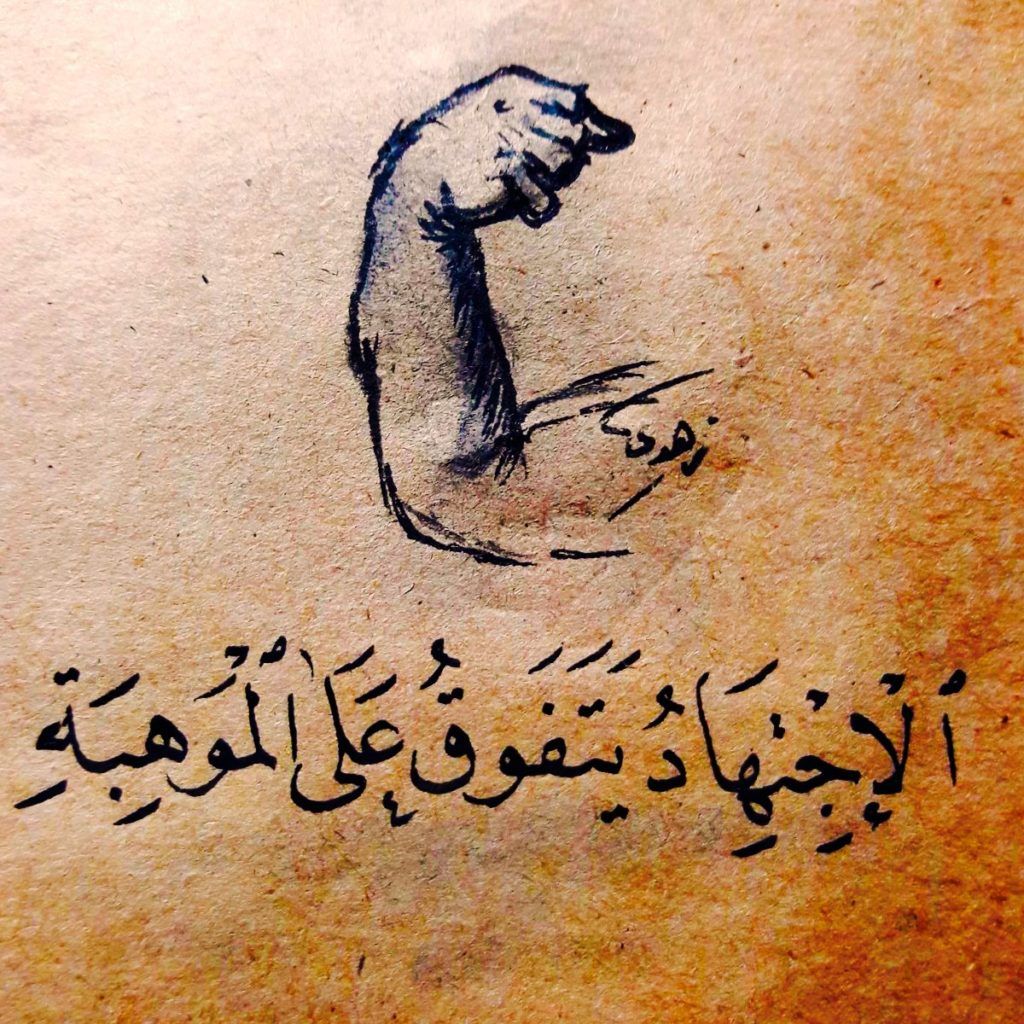 زهدي
ٱلْإِجْتِهَادُ يَتَفَوَقُ عَلَىٰ ٱلْمَوْهِبَةِ